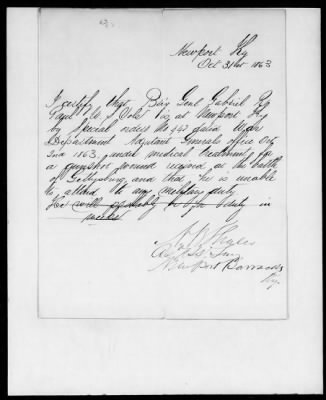 Newport Ky
Oct 31st 1863
I certify that Brig Genl Gabriel R
Paul U. S. Vols is at Newport Ky
by Special orders No 442 War
Department Adjutant Generals office Oct
2nd 1863, under medical treatment for
a gunshot wound received at the battle
of Gettysburg, and that he is unable
to attend to any military duty
He will probably be off duty in
Newport Barracks
Ky.